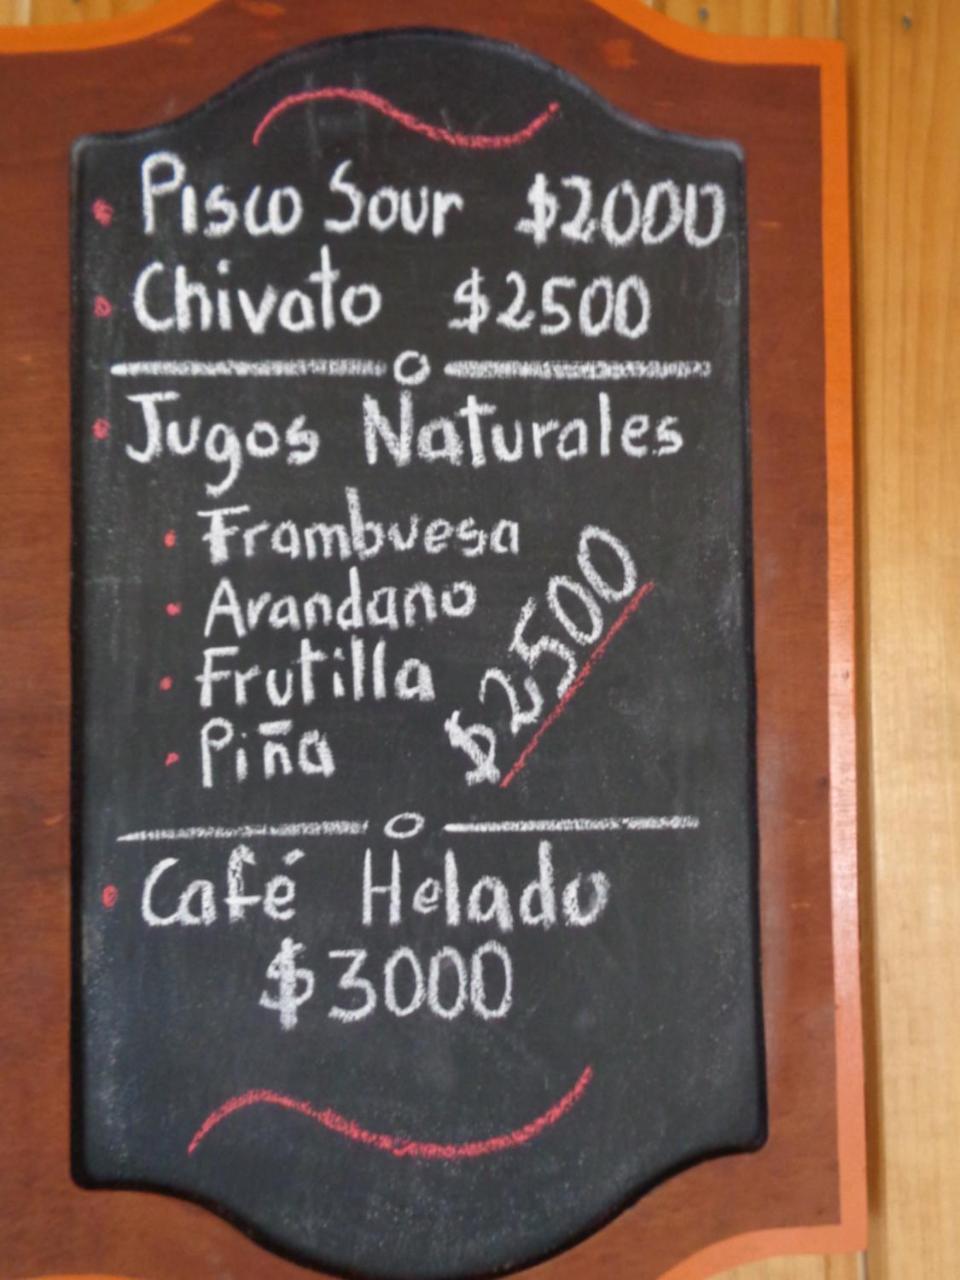 Pisco Sour $2000
Chivato $2500
Jugos Naturales
Frambuesa
Arandano
Frutilla
Piña
$2500
Café Helado
$3000